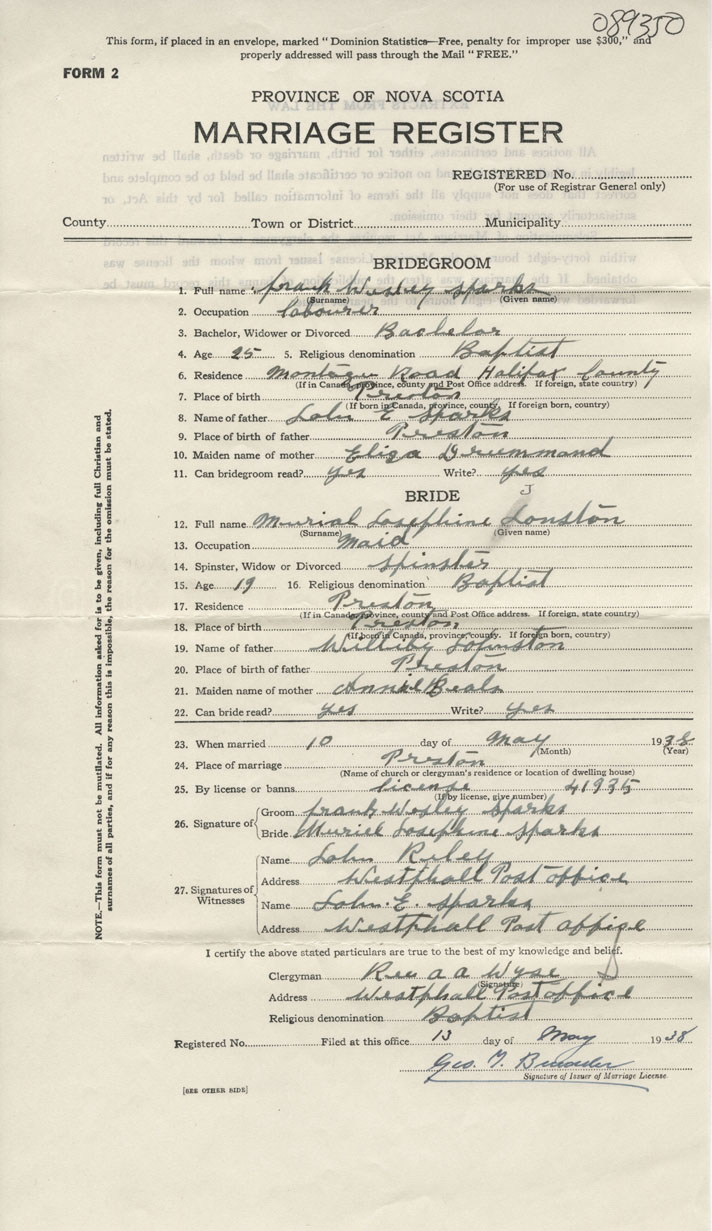 089350
This form, if placed in an envelope, marked "Dominion Statistics—Free, penalty for improper use $300," and
properly addressed will pass through the Mail "FREE."
FORM 2
PROVINCE OF NOVA SCOTIA
MARRIAGE REGISTER
REGISTERED No.
(For use of Registrar General only)
County Town or District Municipality
BRIDEGROOM
1. Full name frank Wesley Sparks
(Surname) (Given name)
2. Occupation labourer
3. Bachelor, Widower or Divorced Bachelor
4. Age 25 5. Religious denomination Baptist
6. Residence Montague Road Halifax County
(If in Canada, province, county and Post Office address. If foreign, state country)
7. Place of birth Preston
(If born in Canada, province, county. If foreign born, country)
8. Name of father John E Sparks
9. Place of father Preston
10. Maiden name of mother Eliza Drummand
11. Can bridegroom read? yes Write? yes
BRIDE J
12. Full name Murial Josephine Jonston
(Surname) (Given name)
13. Occupation Maid
14. Spinster, Widow or Divorced Spinster
15. Age 19 16. Religious denomination Baptist
17. Residence Preston
(If in Canada, province, county and Post Office address. If foreign, state country)
18. Place of birth Preston
(If born in Canada, province, county. If foreign born, country)
19. Name of father Williby Johnston
20. Place of birth of father Preston
21. Maiden name of mother Annie Beals
22. Can bride read? yes Write? yes
23. When married 10 day of May 1938
(Month) (Year)
24. Place of marriage Preston
(Name of church or clergyman's residence or location of dwelling house)
25. By license or banns license 41935
(If by license, give number)
26. Signature of Groom frank Wesley Sparks
Bride Muriel Josephine Sparks
27. Signatures of Witnesses
Name John Riley
Address Westphall Post office
Name John. E. Sparks
Address Westphall Post office
I certify the above stated particulars are true to the best of my knowledge and belief.
Clergyman Rev a a Wyse
(Signature)
Address Westphall Post office
Religious denomination Baptist
Registered No. Filed at this office 13 day of May 1938
Geo. T.
Signature of Issuer of Marriage License
[SEE OTHER SIDE]
NOTE.—This form must not be mutilated. All information asked for is to be given, including full Christian and
surnames of all parties, and if for any reason this is impossible, the reason for the omission must be stated.